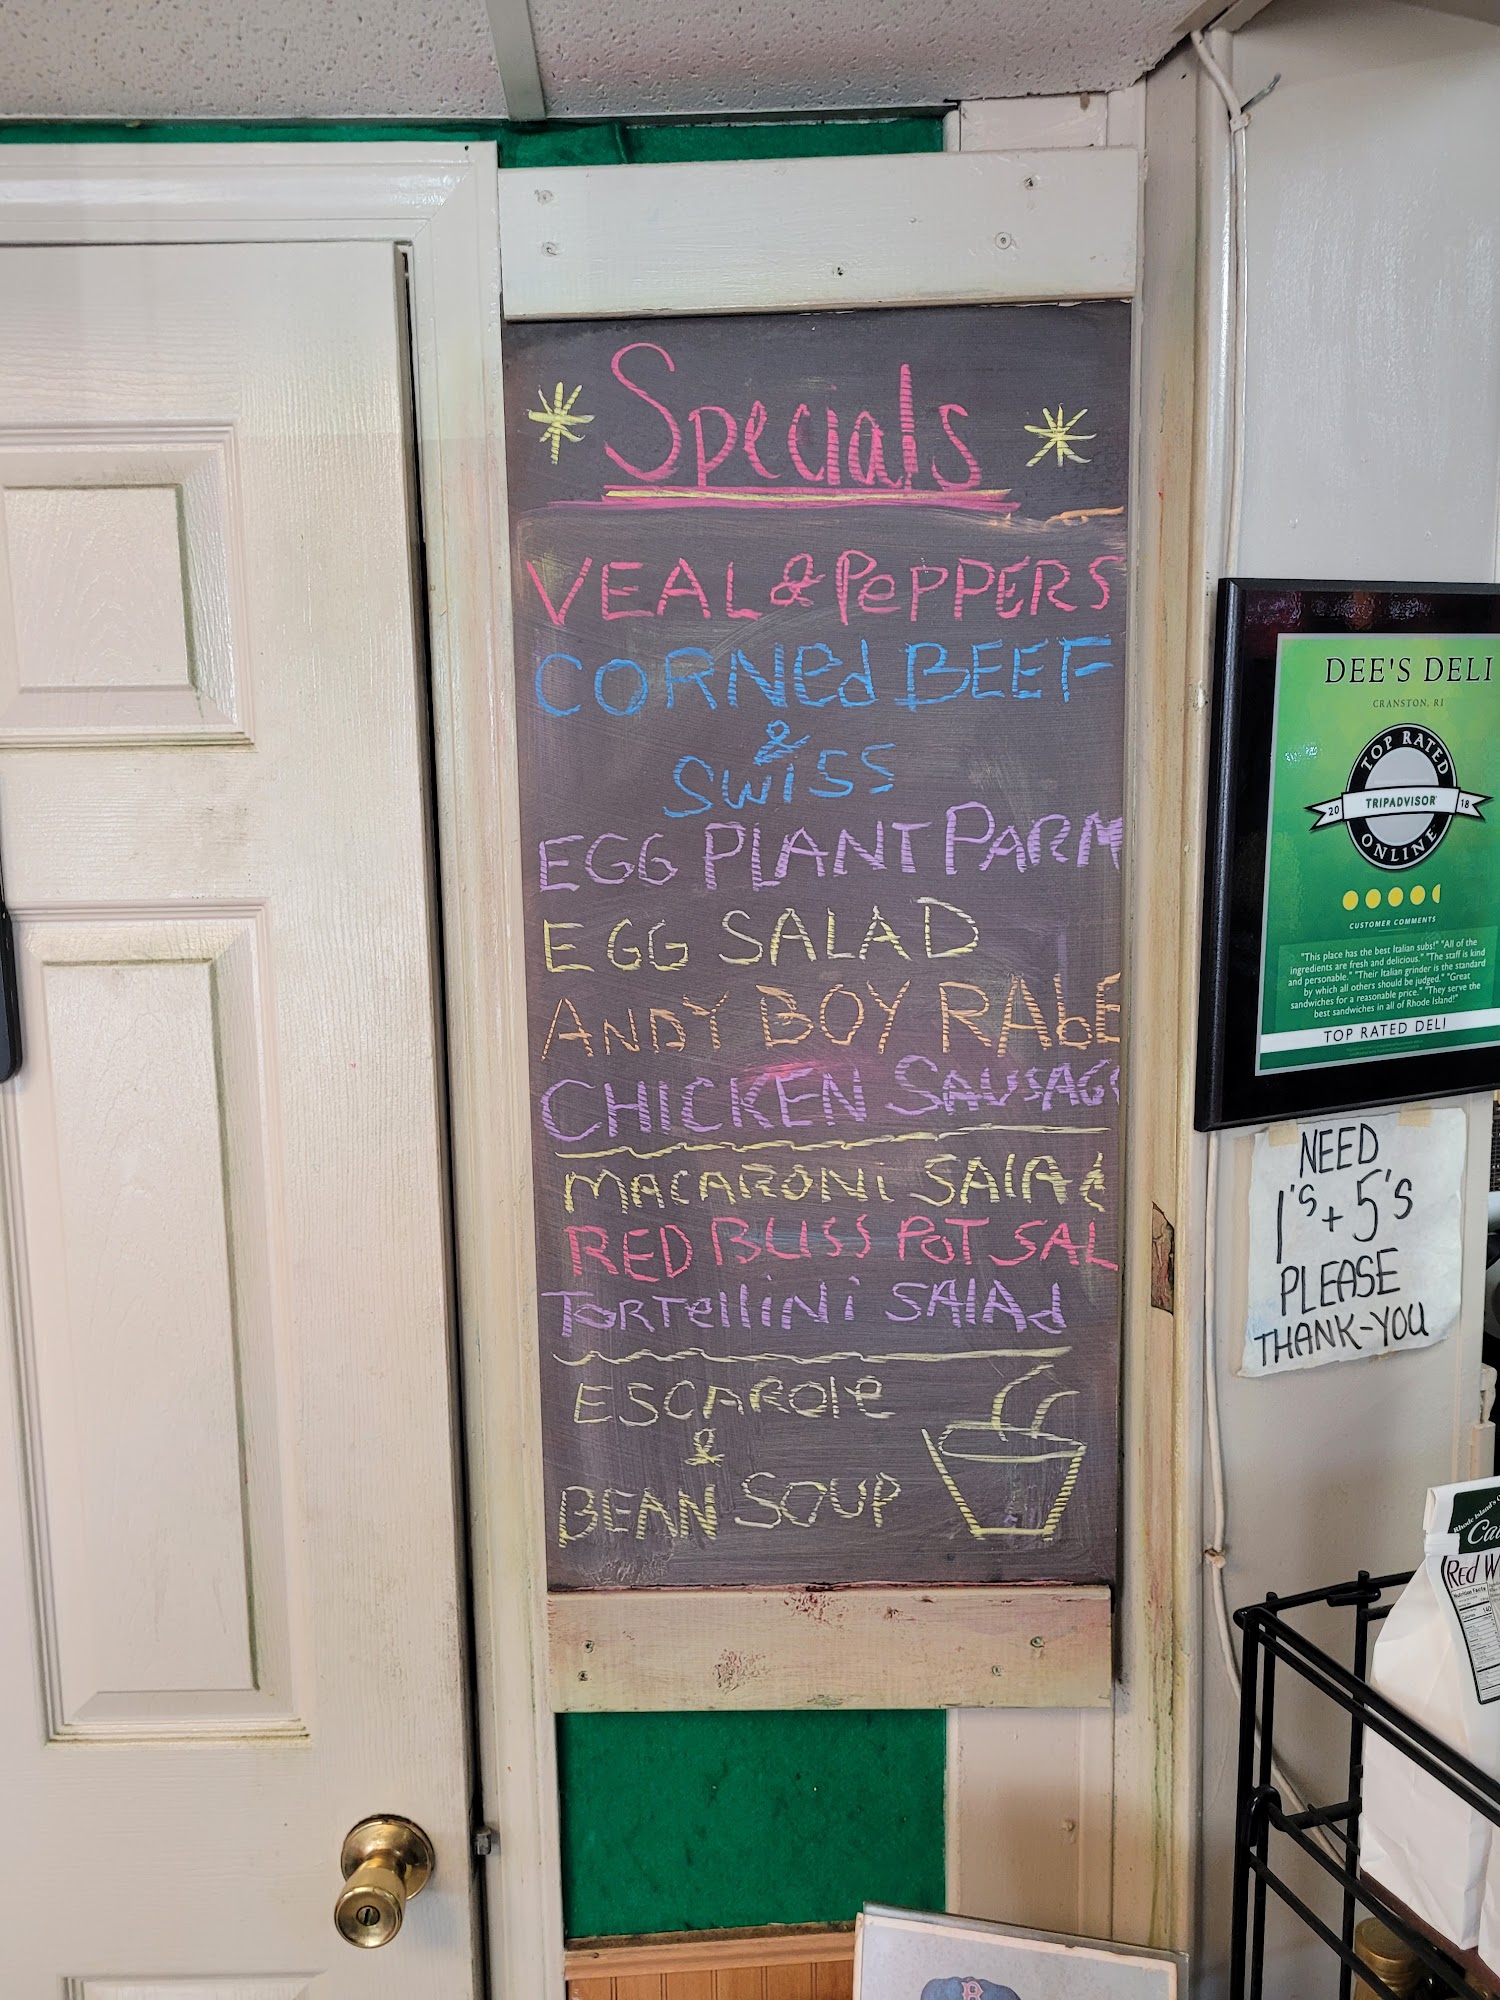 * Specials *
VEAL & PePPERS
CORNed BEEF
&
SWiSS
EGG PLANT PARM
EGG SALAD
ANDY BOY RAbE
CHICKEN SAUSAG
MACARONi SAlAd
RED BLISS POT SAL
TORTellini SAlAd
ESCAROle
&
BEAN SOUP
DEE'S DELI
CRANSTON, RI
TOP RATED
20 TRIPADVISOR 18
ONLINE
CUSTOMER COMMENTS
"This place has the best Italian subs!" "All of the
ingredients are fresh and delicious." "The staff is kind
and personable." "Their Italian grinder is the standard
by which all others should be judged." "Great
sandwiches for a reasonable price." "They serve the
best sandwiches in all of Rhode Island!"
TOP RATED DELI
NEED
1's + 5's
PLEASE
THANK-YOU
Rhode Island's
Red W
Nutrition Facts
140
B